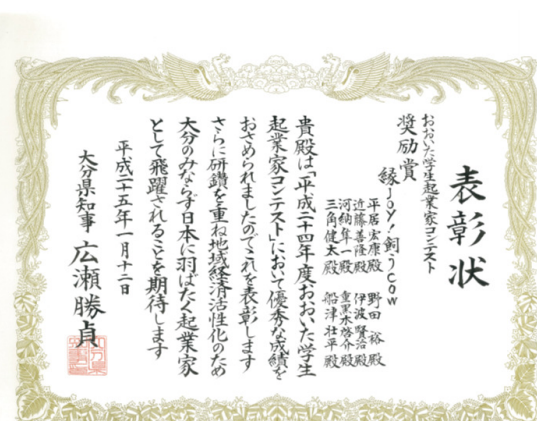 表彰状
おおいた学生起業家コンテスト
奨励賞
縁joy!飼うcow
平居宏康殿 野田 裕殿
近藤善隆殿 伊波賢治殿
河納隼一殿 重黒木啓介殿
三角健太殿 船津壮平殿
貴殿は「平成二十四年度おおいた学生
起業家コンテスト」において優秀な成績を
おさめられましたのでこれを表彰します
さらに研鑽を重ね地域経済活性化のため
大分のみならず日本に羽ばたく起業家
として飛躍されることを期待します
平成二十五年一月十二日
大分県知事 広瀬勝貞